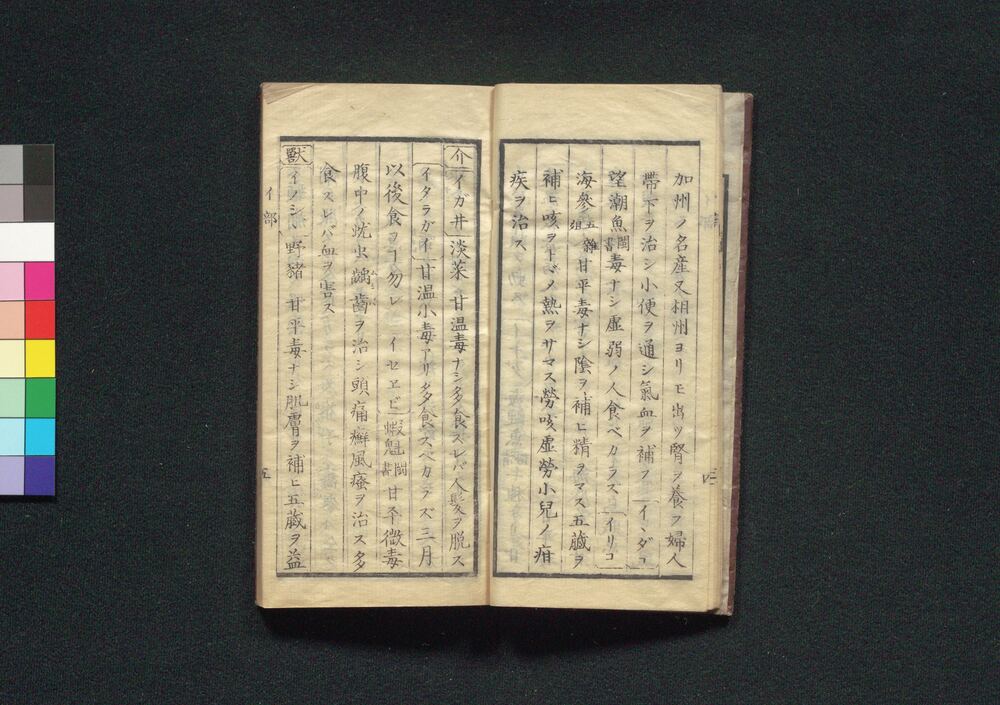 加州ノ名産又相州ヨリモ出ツ腎ヲ養フ婦人
帶下ヲ治シ小便ヲ通シ氣血ヲ補フ イヽダコ
望潮魚 閩書 毒ナシ虚弱ノ人食ベカラズ イリコ
海參 五雜爼 甘平毒ナシ陰ヲ補ヒ精ヲマス五藏ヲ
補ヒ咳ヲトヾメ熱ヲサマス勞咳虚勞小兒ノ疳
疾ヲ治ス
介 イカ井 淡菜 甘温毒ナシ多食スレバ人髪ヲ脱ス
イタラガイ 甘温小毒アリ多食スベカラズ三月
以後食ヲヿ勿レ イセヱビ 蝦魁 閩書 甘平微毒
腹中ノ虫齲齒ヲ治シ頭痛癬風瘙ヲ治ス多
食スレバ血ヲ害ス
獸 イノシヽ 野猪 甘平毒ナシ肌膚ヲ補ヒ五藏ヲ益
イ部